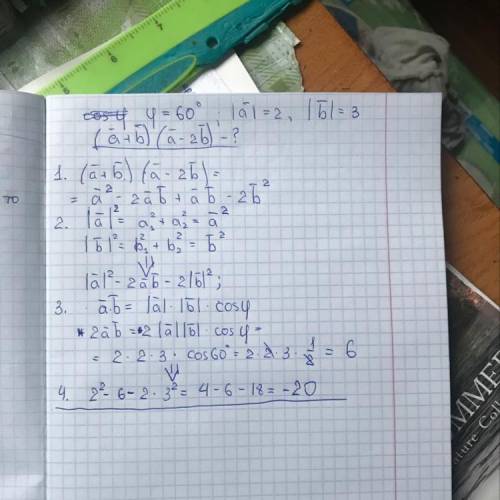 cos φ φ = 60°, |a̅| = 2, |b̅| = 3
(a̅+b̅)(a̅-2b̅) - ?
1. (a̅+b̅)(a̅-2b̅) =
= a̅² - 2a̅b̅ + a̅b̅ - 2b̅²
2. |a̅|² = a₁² + a₂² = a̅²
|b̅|² = b₁² + b₂² = b̅²
⇓
|a̅|² - 2a̅b̅ - 2|b̅|²;
3. a̅·b̅ = |a̅|·|b̅|·cosφ
2a̅b̅ = 2|a̅||b̅|·cosφ =
= 2·2·3·cos60° = 2·2·3·1/2 = 6
⇓
4. 2² - 6 - 2·3² = 4 - 6 - 18 = -20
то
MME
ature Colle